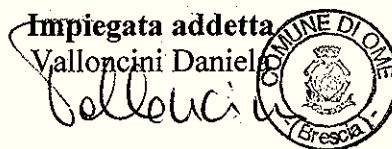 Impiegata addetta
Valloncini Daniela
Valloncini
COMUNE DI OME
(Brescia)